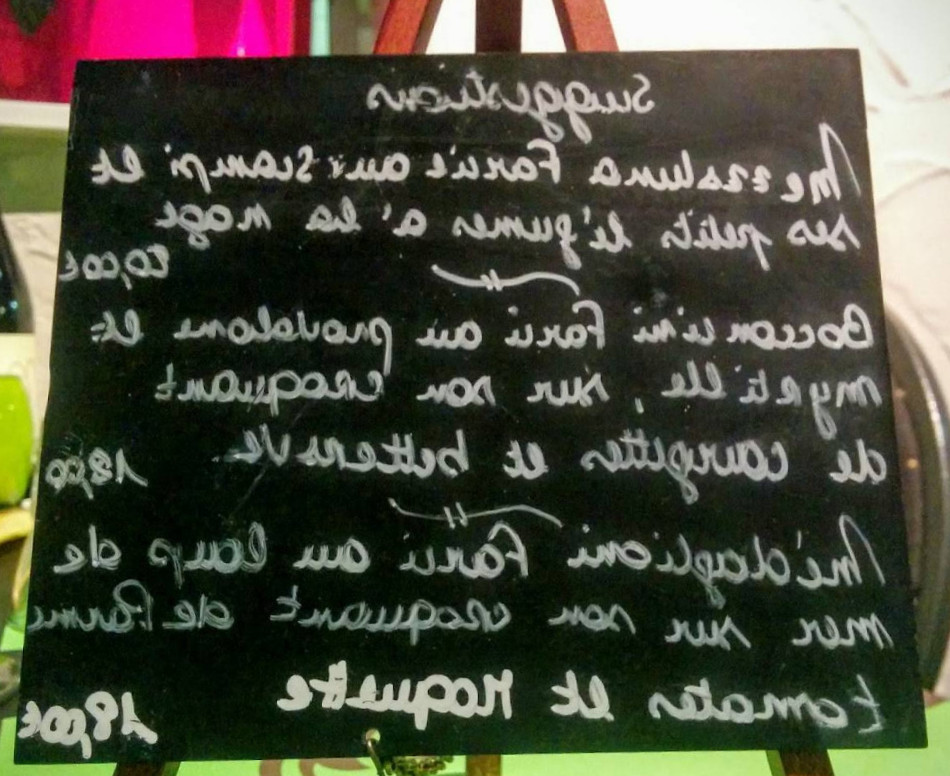 Suggestions
Mezzaluna Farcie aux Scampi et
ses petits légumes à la nage
20,00€
Bocconcini farci au provolone et
myrtille, sur son croquant
de courgettes et betterave.
18,00
Médaglioni farci au loup de
mer sur son croquant de Parme
tomates et Roquette
18,00€